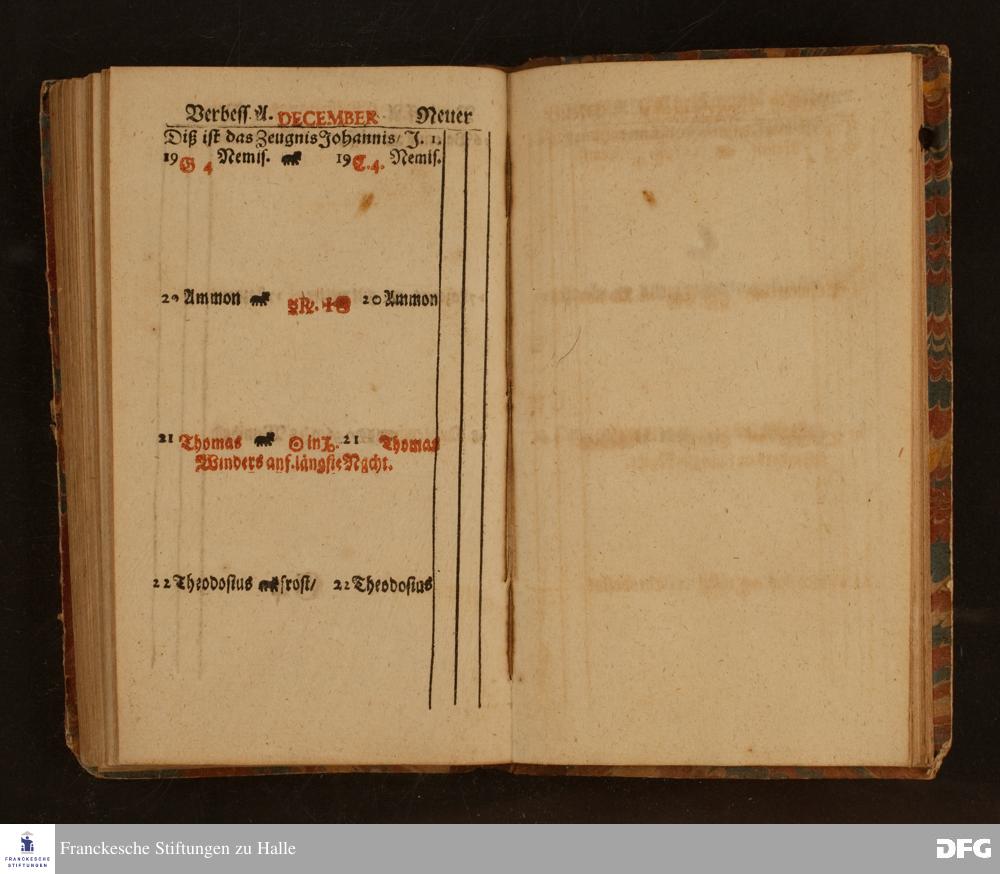 Verbess. A. DECEMBER Neuer
Diß ist das Zeugnis Johannis/ J. 1.
19 G 4 Nemis. 19 C. 4. Nemis.
20 Ammon 20 Ammon
21 Thomas ☉ in ♑. 21 Thomas
Winders anf. längste Nacht.
22 Theodosius frost/ 22 Theodosius
FRANCKESCHE
STIFTUNGEN
Franckesche Stiftungen zu Halle
DFG